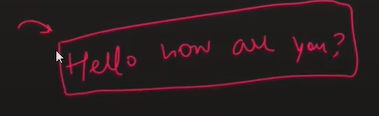 Hello how are you?